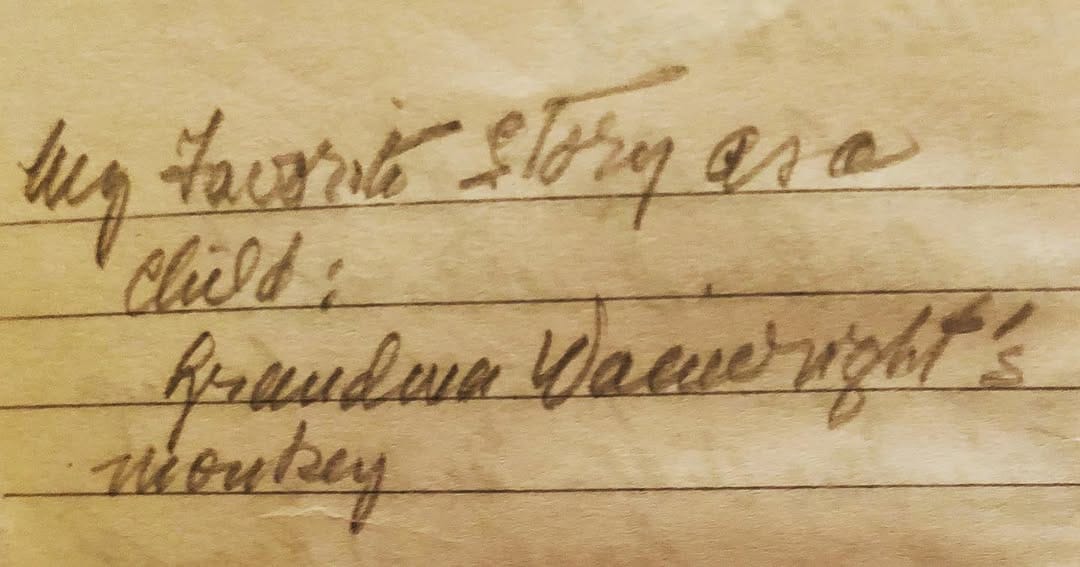 My Favorite Story as a
child:
Grandma Wainwright's
monkey